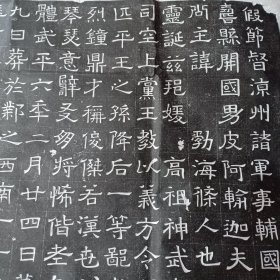 假節督涼州諸軍事輔國
憙縣開國男皮阿輸迦夫
尚主諱 勃海條人也
靈誕茲邦媛 高祖神武
司空上黨王教以義方令
匹平王之孫降后一等鄙
烈鐘鼎才稱俊傑若漢
琴瑟意辭多將偕老
體武平六季二月廿四日
九日葬於鄴之西南一